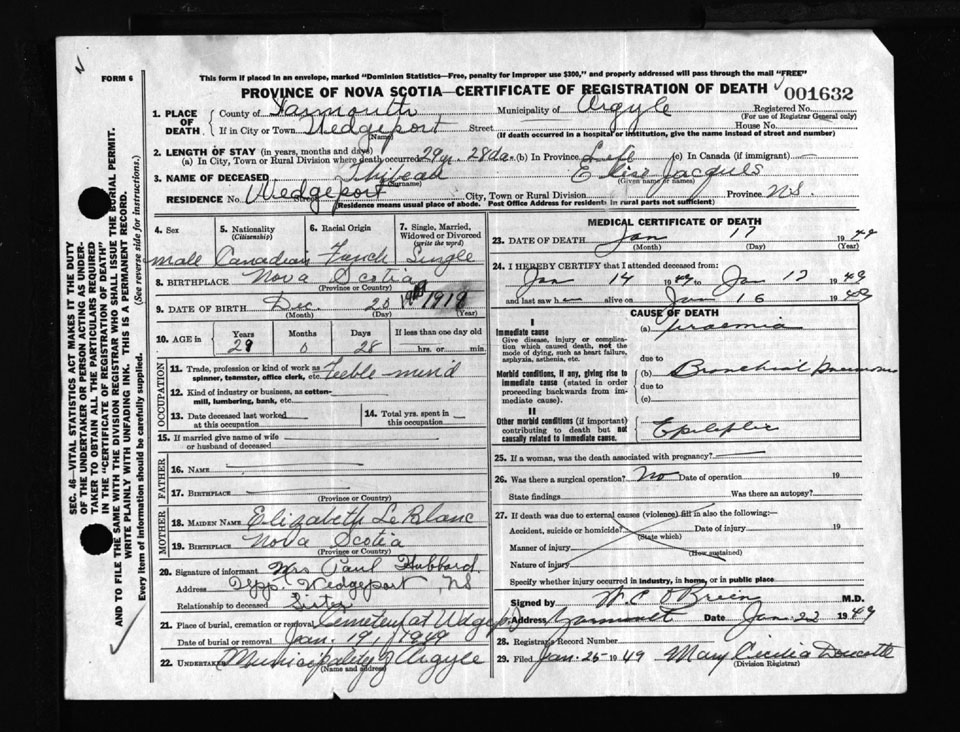 FORM 6
This form if placed in an envelope, marked "Dominion Statistics—Free, penalty for improper use $300," and properly addressed will pass through the mail "FREE"
PROVINCE OF NOVA SCOTIA—CERTIFICATE OF REGISTRATION OF DEATH
001632
1. PLACE OF DEATH. County of Yarmouth Municipality of Argyle Registered No.
(For use of Registrar General only)
If in City or Town Wedgeport Street House No.
(Name) (If death occurred in a hospital or institution, give the name instead of street and number)
2. LENGTH OF STAY (in years, months and days)
(a) In City, Town or Rural Division where death occurred 29y. 28da. (b) In Province Life (c) In Canada (if immigrant) —
3. NAME OF DECEASED Thibeau Elise Jacques
(Surname) (Given name or names)
RESIDENCE No. Wedgeport Street City, Town or Rural Division Province N.S.
(Residence means usual place of abode. Post Office Address for residents in rural parts not sufficient)
4. Sex
male
5. Nationality
(Citizenship)
Canadian
6. Racial Origin
French
7. Single, Married, Widowed or Divorced
(write the word)
Single
8. BIRTHPLACE Nova Scotia
(Province or Country)
9. DATE OF BIRTH Dec. 20 1919
(Month) (Day) (Year)
10. AGE in Years Months Days If less than one day old
29 0 28 hrs. or min.
OCCUPATION
11. Trade, profession or kind of work as spinner, teamster, office clerk, etc. Feeble-mind
12. Kind of industry or business, as cotton-mill, lumbering, bank, etc.
13. Date deceased last worked at this occupation
14. Total yrs. spent in this occupation
15. If married give name of wife or husband of deceased
FATHER
16. NAME
17. BIRTHPLACE
(Province or Country)
MOTHER
18. MAIDEN NAME Elizabeth LeBlanc
19. BIRTHPLACE Nova Scotia
(Province or Country)
20. Signature of informant Mrs Paul Hubbard
Address Upp. Wedgeport, NS
Relationship to deceased Sister
21. Place of burial, cremation or removal Cemetery at Wedgeport
Date of burial or removal Jan. 19, 1949
22. UNDERTAKER Municipality of Argyle
(Name and address)
MEDICAL CERTIFICATE OF DEATH
23. DATE OF DEATH Jan 17 1949
(Month) (Day) (Year)
24. I HEREBY CERTIFY that I attended deceased from:
Jan 14 1949 to Jan 17 1949
and last saw h alive on Jan 16 1949
CAUSE OF DEATH
I
Immediate cause (a) Uraemia
Give disease, injury or complication which caused death, not the mode of dying, such as heart failure, asphyxia, asthenia, etc.
due to
Morbid conditions, if any, giving rise to immediate cause (stated in order proceeding backwards from immediate cause).
(b) Bronchial Pneumonia
due to
(c)
II
Other morbid conditions (if important) contributing to death but not causally related to immediate cause.
Epileptic
25. If a woman, was the death associated with pregnancy?
26. Was there a surgical operation? No Date of operation 19
State findings Was there an autopsy?
27. If death was due to external causes (violence) fill in also the following:—
Accident, suicide or homicide? Date of injury 19
(State which)
Manner of injury
(How sustained)
Nature of injury
Specify whether injury occurred in industry, in home, or in public place
Signed by W. C. O'Brien M.D.
Address Yarmouth Date Jan. 22 1949
28. Registrar's Record Number
29. Filed Jan. 25 1949 Mary Cecilia Doucette
(Division Registrar)
SEC. 46—VITAL STATISTICS ACT MAKES IT THE DUTY
OF THE UNDERTAKER OR PERSON ACTING AS UNDER-
TAKER TO OBTAIN ALL THE PARTICULARS REQUIRED
IN THE "CERTIFICATE OF REGISTRATION OF DEATH"
AND TO FILE THE SAME WITH THE DIVISION REGISTRAR WHO SHALL ISSUE THE BURIAL PERMIT.
WRITE PLAINLY WITH UNFADING INK. THIS IS A PERMANENT RECORD.
Every item of information should be carefully supplied. (See reverse side for instructions.)